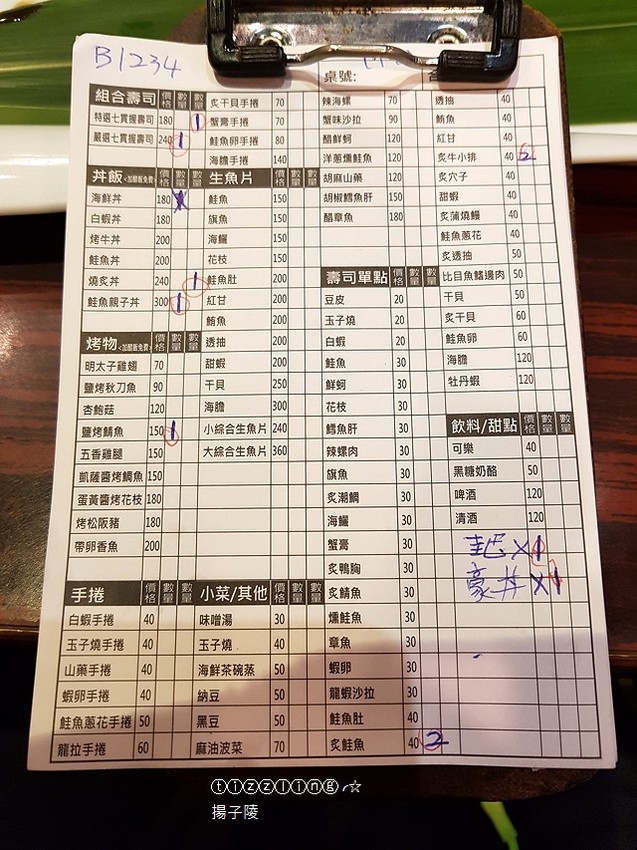 B1234
桌號:
組合壽司 價格 數量 數量
特選七貫握壽司 180
嚴選七貫握壽司 240 1
丼飯 價格 數量 數量
海鮮丼 180
白蝦丼 180
烤牛丼 200
鮭魚丼 200
燒炙丼 240
鮭魚親子丼 300 1
烤物 價格 數量 數量
明太子雞翅 70
鹽烤秋刀魚 90
杏鮑菇 120
鹽烤鯖魚 150 1
五香雞腿 150
凱薩醬烤鯛魚 150
蛋黃醬烤花枝 180
烤松阪豬 180
帶卵香魚 200
手捲 價格 數量 數量
白蝦手捲 40
玉子燒手捲 40
山藥手捲 40
蝦卵手捲 40
鮭魚蔥花手捲 50
龍拉手捲 60
炙干貝手捲 70
1 蟹膏手捲 70
鮭魚卵手捲 80
海膽手捲 140
生魚片 價格 數量 數量
鮭魚 150
旗魚 150
海鱺 150
花枝 150
1 鮭魚肚 200
紅甘 200
鮪魚 200
透抽 200
甜蝦 200
干貝 250
海膽 300
小綜合生魚片 240
大綜合生魚片 360
小菜/其他 價格 數量 數量
味噌湯 30
玉子燒 40
海鮮茶碗蒸 50
納豆 50
黑豆 50
麻油波菜 70
辣海螺 70
蟹味沙拉 90
醋鮮蚵 120
洋蔥燻鮭魚 120
胡麻山藥 120
胡椒鱈魚肝 150
醋章魚 180
壽司單點 價格 數量 數量
豆皮 20
玉子燒 20
白蝦 20
鮭魚 30
鮮蚵 30
花枝 30
鱈魚肝 30
辣螺肉 30
旗魚 30
炙潮鯛 30
海鱺 30
蟹膏 30
炙鴨胸 30
炙鯖魚 30
燻鮭魚 30
章魚 30
蝦卵 30
龍蝦沙拉 30
鮭魚肚 40
炙鮭魚 40 2
透抽 40
鮪魚 40
紅甘 40
炙牛小排 40 2
炙穴子 40
甜蝦 40
炙蒲燒鰻 40
鮭魚蔥花 40
炙透抽 50
比目魚鰭邊肉 50
干貝 50
炙干貝 60
鮭魚卵 60
海膽 120
牡丹蝦 120
飲料/甜點 價格 數量 數量
可樂 40
黑糖奶酪 50
啤酒 120
清酒 120
X1
豪丼X1
tizzling
揚子陵